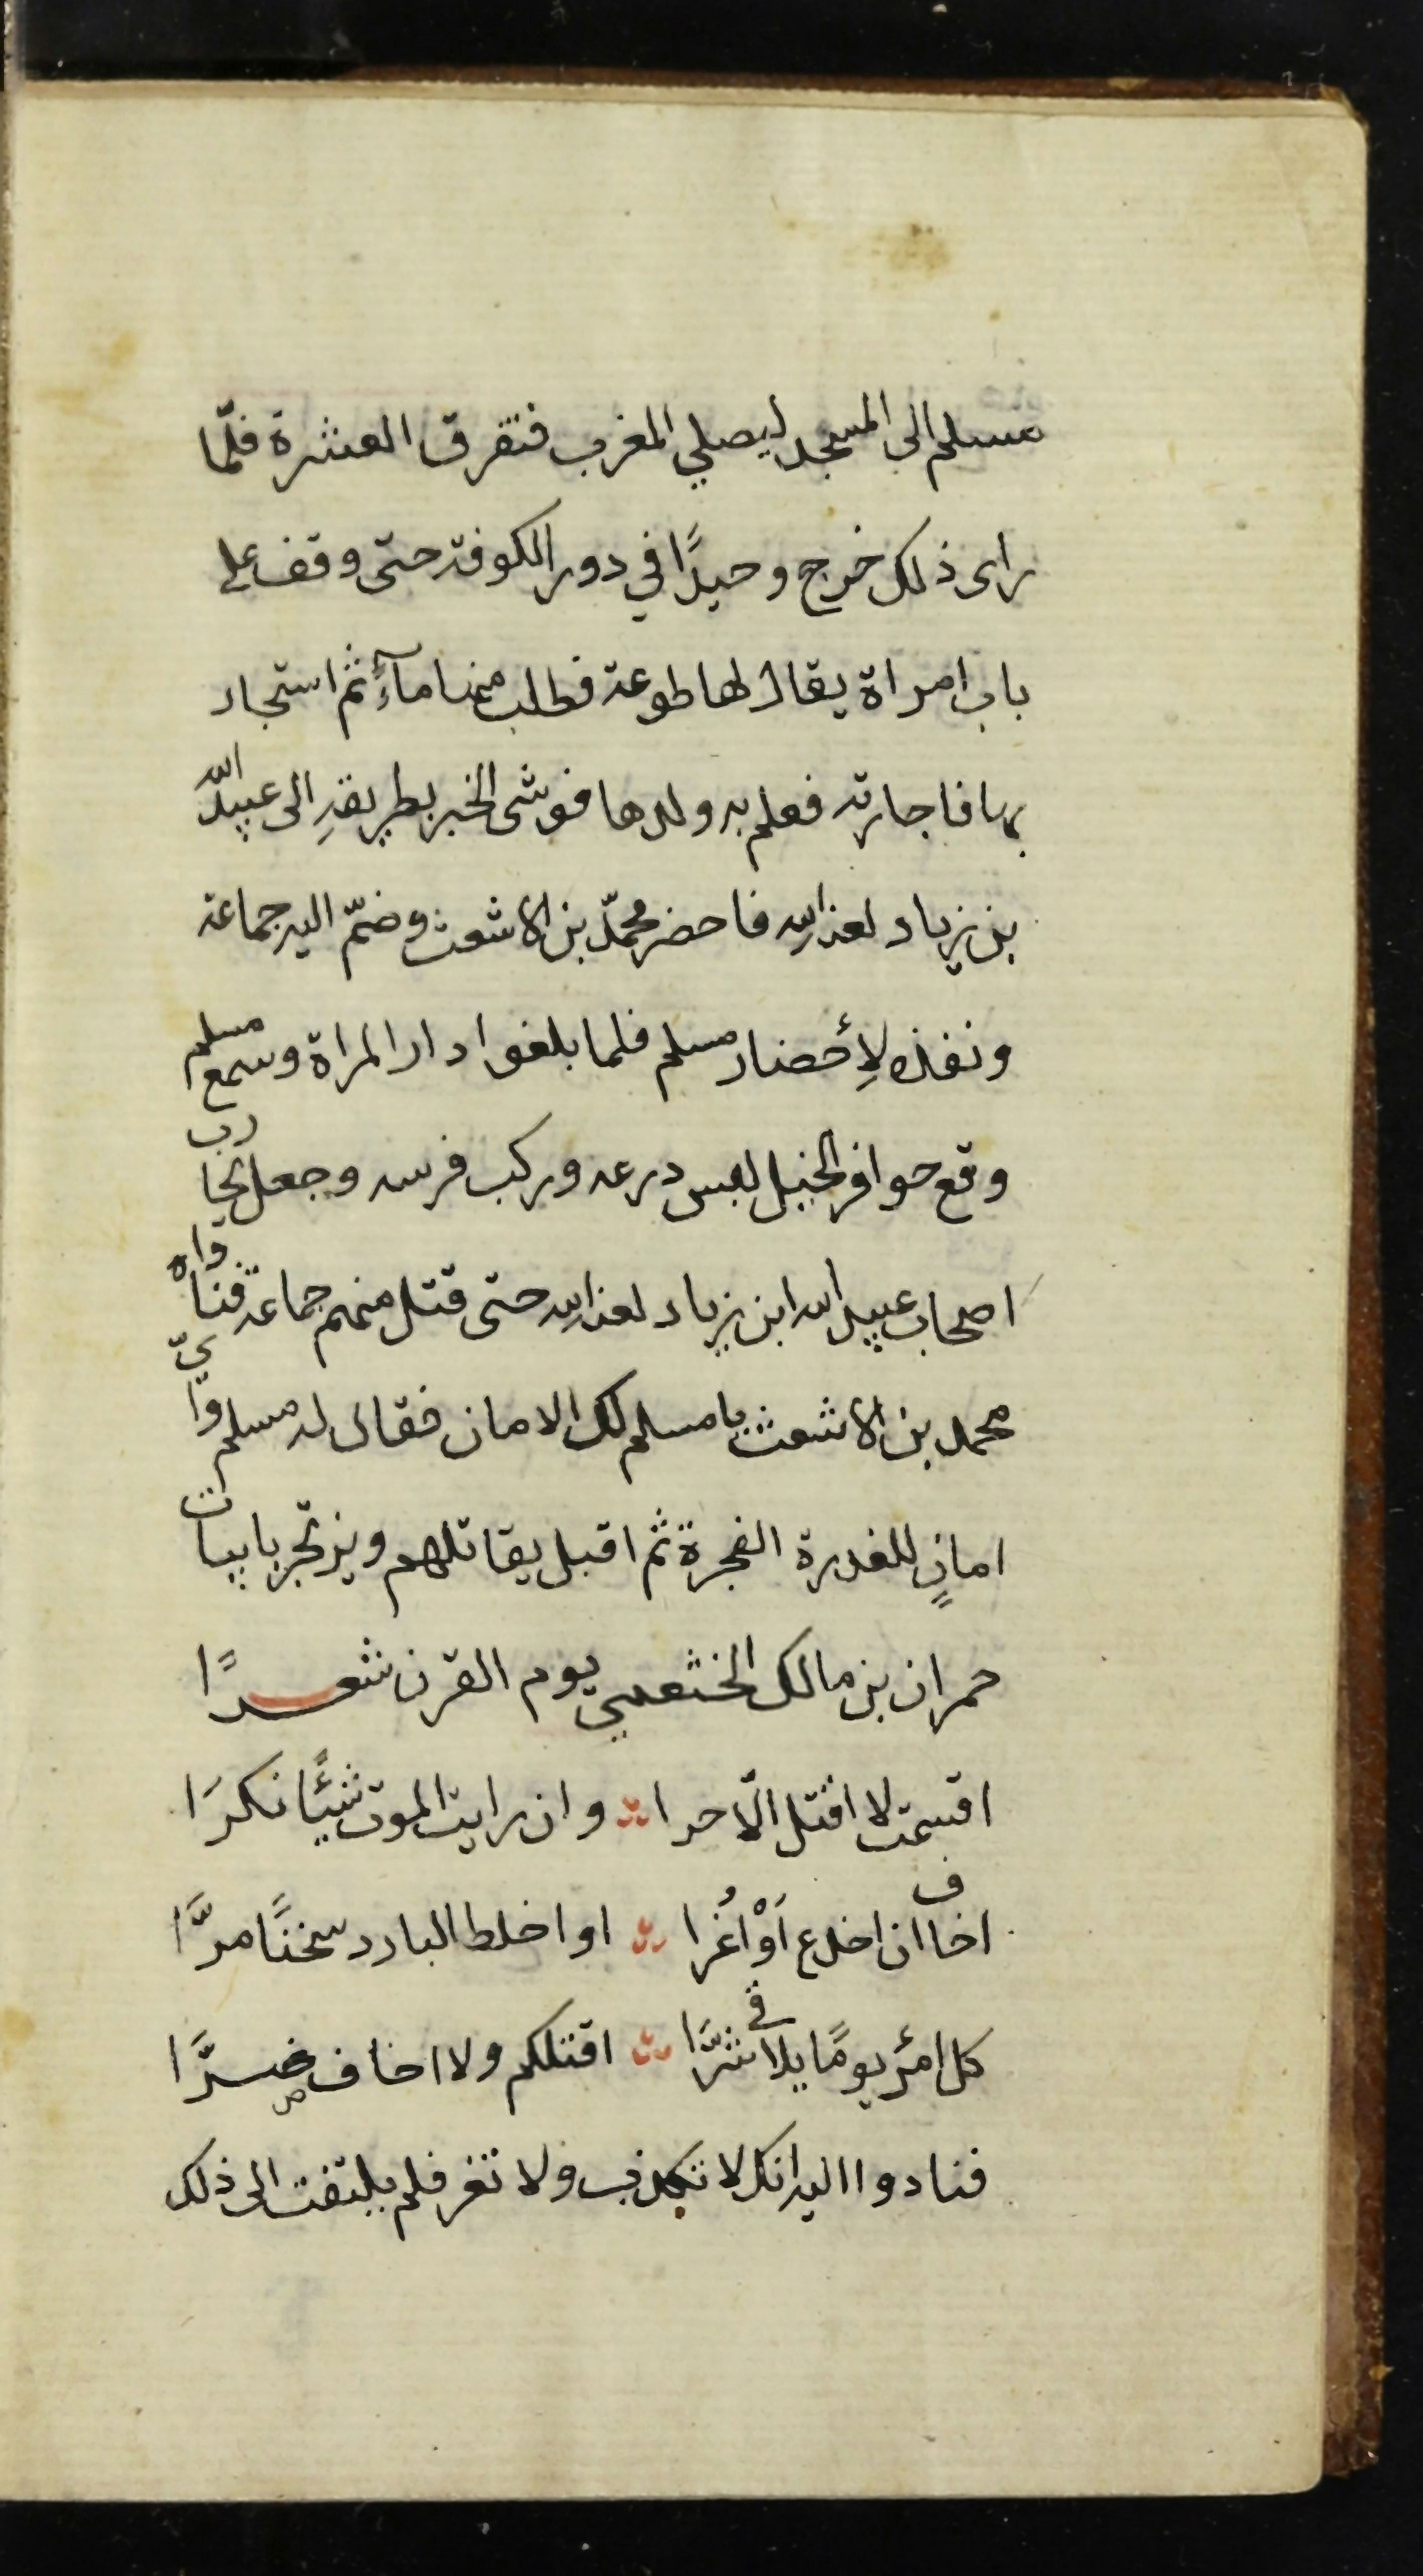 مسلم الى المسجد ليصلي المغرب فتفرق العشرة فلمّا
راى ذلك خرج وحيدًا في دور الكوفة حتى وقف على
باب امراة يقال لها طوعة فطلب منها مآءً ثم استجار
بها فاجارته فعلم به ولدها فوشى الخبر بطريقهِ الى عبيد اللّه
بن زياد لعنه اللهِ فاحضر محمّد بن الاشعث وضمّ اليه جماعة
ونفذه لِأحضار مسلم فلما بلغوا دار المراة وسمع مسلم
وقع حوافر الخيل لبس درعه وركب فرسه وجعل يحارب
اصحاب عبيد الله ابن زياد لعنه اللهِ حتى قتل منهم جماعة فناداه
محمد بن الاشعث يا مسلم لك الامان فقال له مسلم وايّ
امانٍ للغدرة الفجرة ثم اقبل يقاتلهم ويرتجز بابيات
حمران بن مالك الخثعمي يوم القرن شعـــرًا
اقسمت لا اقتل الّا حرا وان رايت الموت شيئًا نكرَا
اخاف ان اخدع اَوْ اُغرا او اخلط البارد سخنًا مرَّا
كل امرئ يومًا يلاقي شرَّا اقتلكم ولا اخاف ضـــرَّا
فنادوا اليه انك لا تكذب ولا تغر فلم يلتفت الى ذلك